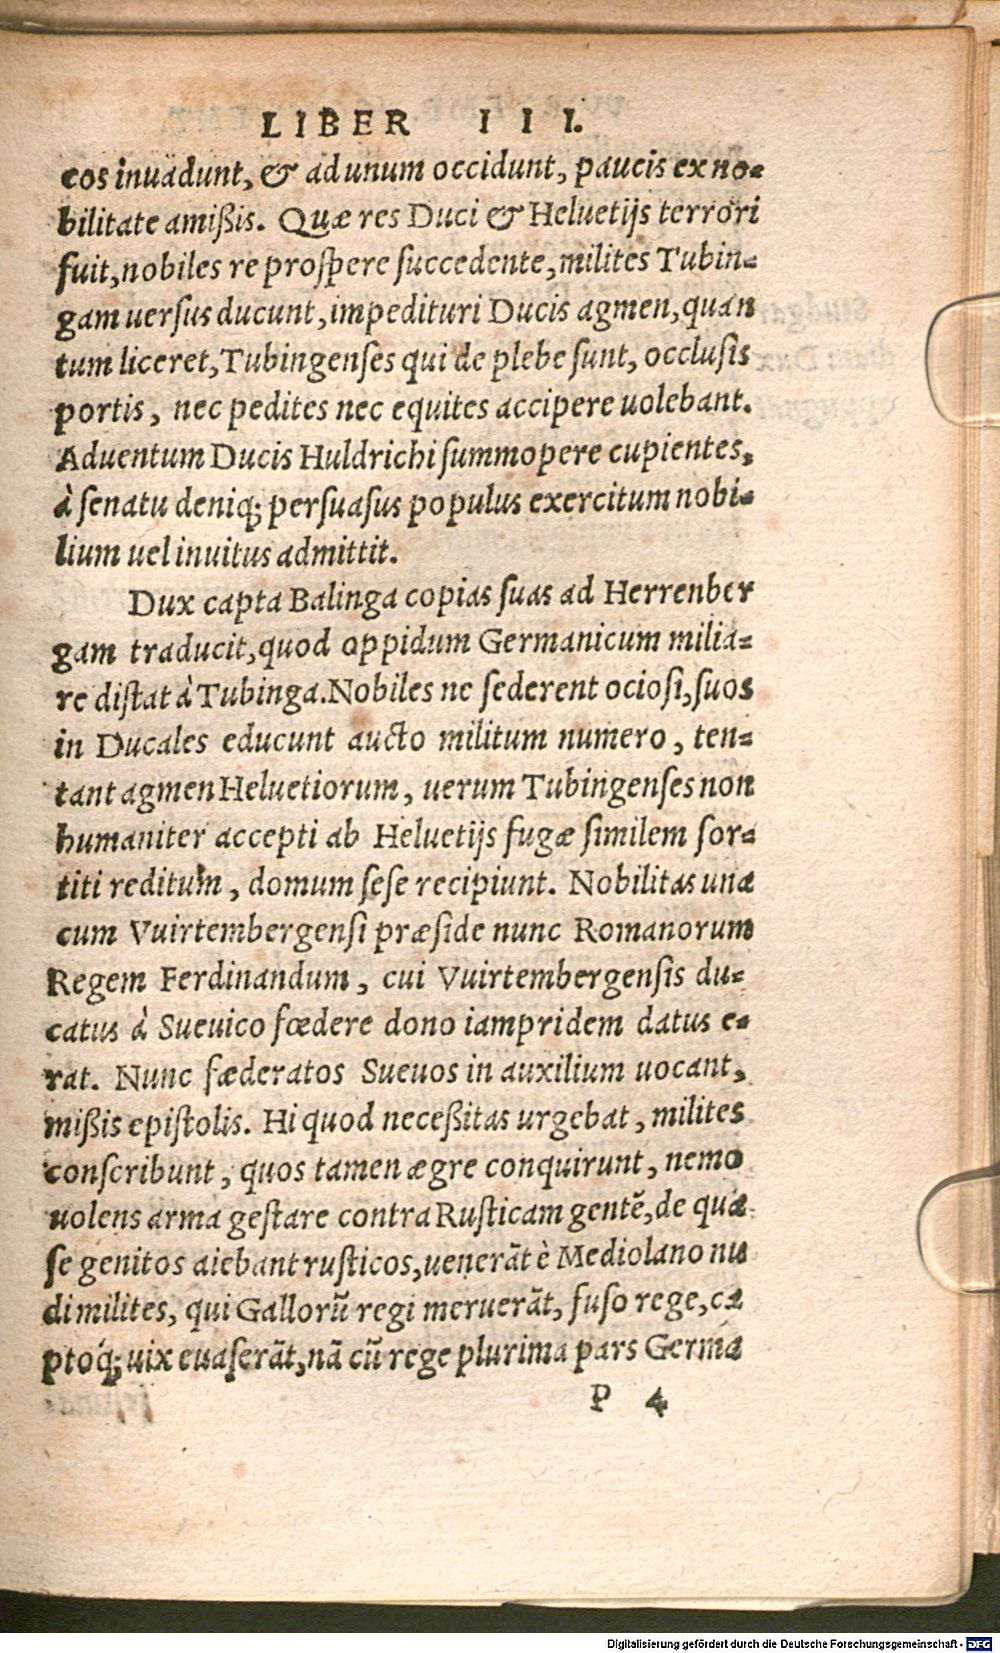 LIBER III.
cos inuadunt, & ad unum occidunt, paucis ex no-
bilitate amißis. Quæ res Duci & Heluetijs terrori
fuit, nobiles re prospere succedente, milites Tubin-
gam uersus ducunt, impedituri Ducis agmen, quan
tum liceret, Tubingenses qui de plebe sunt, occlusis
portis, nec pedites nec equites accipere uolebant.
Aduentum Ducis Huldrichi summopere cupientes,
à senatu deniq; persuasus populus exercitum nobi-
lium uel inuitus admittit.
Dux capta Balinga copias suas ad Herrenber
gam traducit, quod oppidum Germanicum milia-
re distat à Tubinga. Nobiles ne sederent ociosi, suos
in Ducales educunt aucto militum numero, ten-
tant agmen Heluetiorum, uerum Tubingenses non
humaniter accepti ab Heluetijs fugæ similem sor-
titi reditum, domum sese recipiunt. Nobilitas una
cum Vuirtembergensi præside nunc Romanorum
Regem Ferdinandum, cui Vuirtembergensis du-
catus à Sueuico fœdere dono iampridem datus e-
rat. Nunc fœderatos Sueuos in auxilium uocant,
mißis epistolis. Hi quod neceßitas urgebat, milites
conscribunt, quos tamen ægre conquirunt, nemo
uolens arma gestare contra Rusticam gentē, de qua
se genitos aiebant rusticos, uenerāt è Mediolano nu
di milites, qui Gallorū regi meruerāt, fuso rege, ca
ptoq́; uix euaserāt, nā cū rege plurima pars Germa
P 4
Digitalisierung gefördert durch die Deutsche Forschungsgemeinschaft - DFG